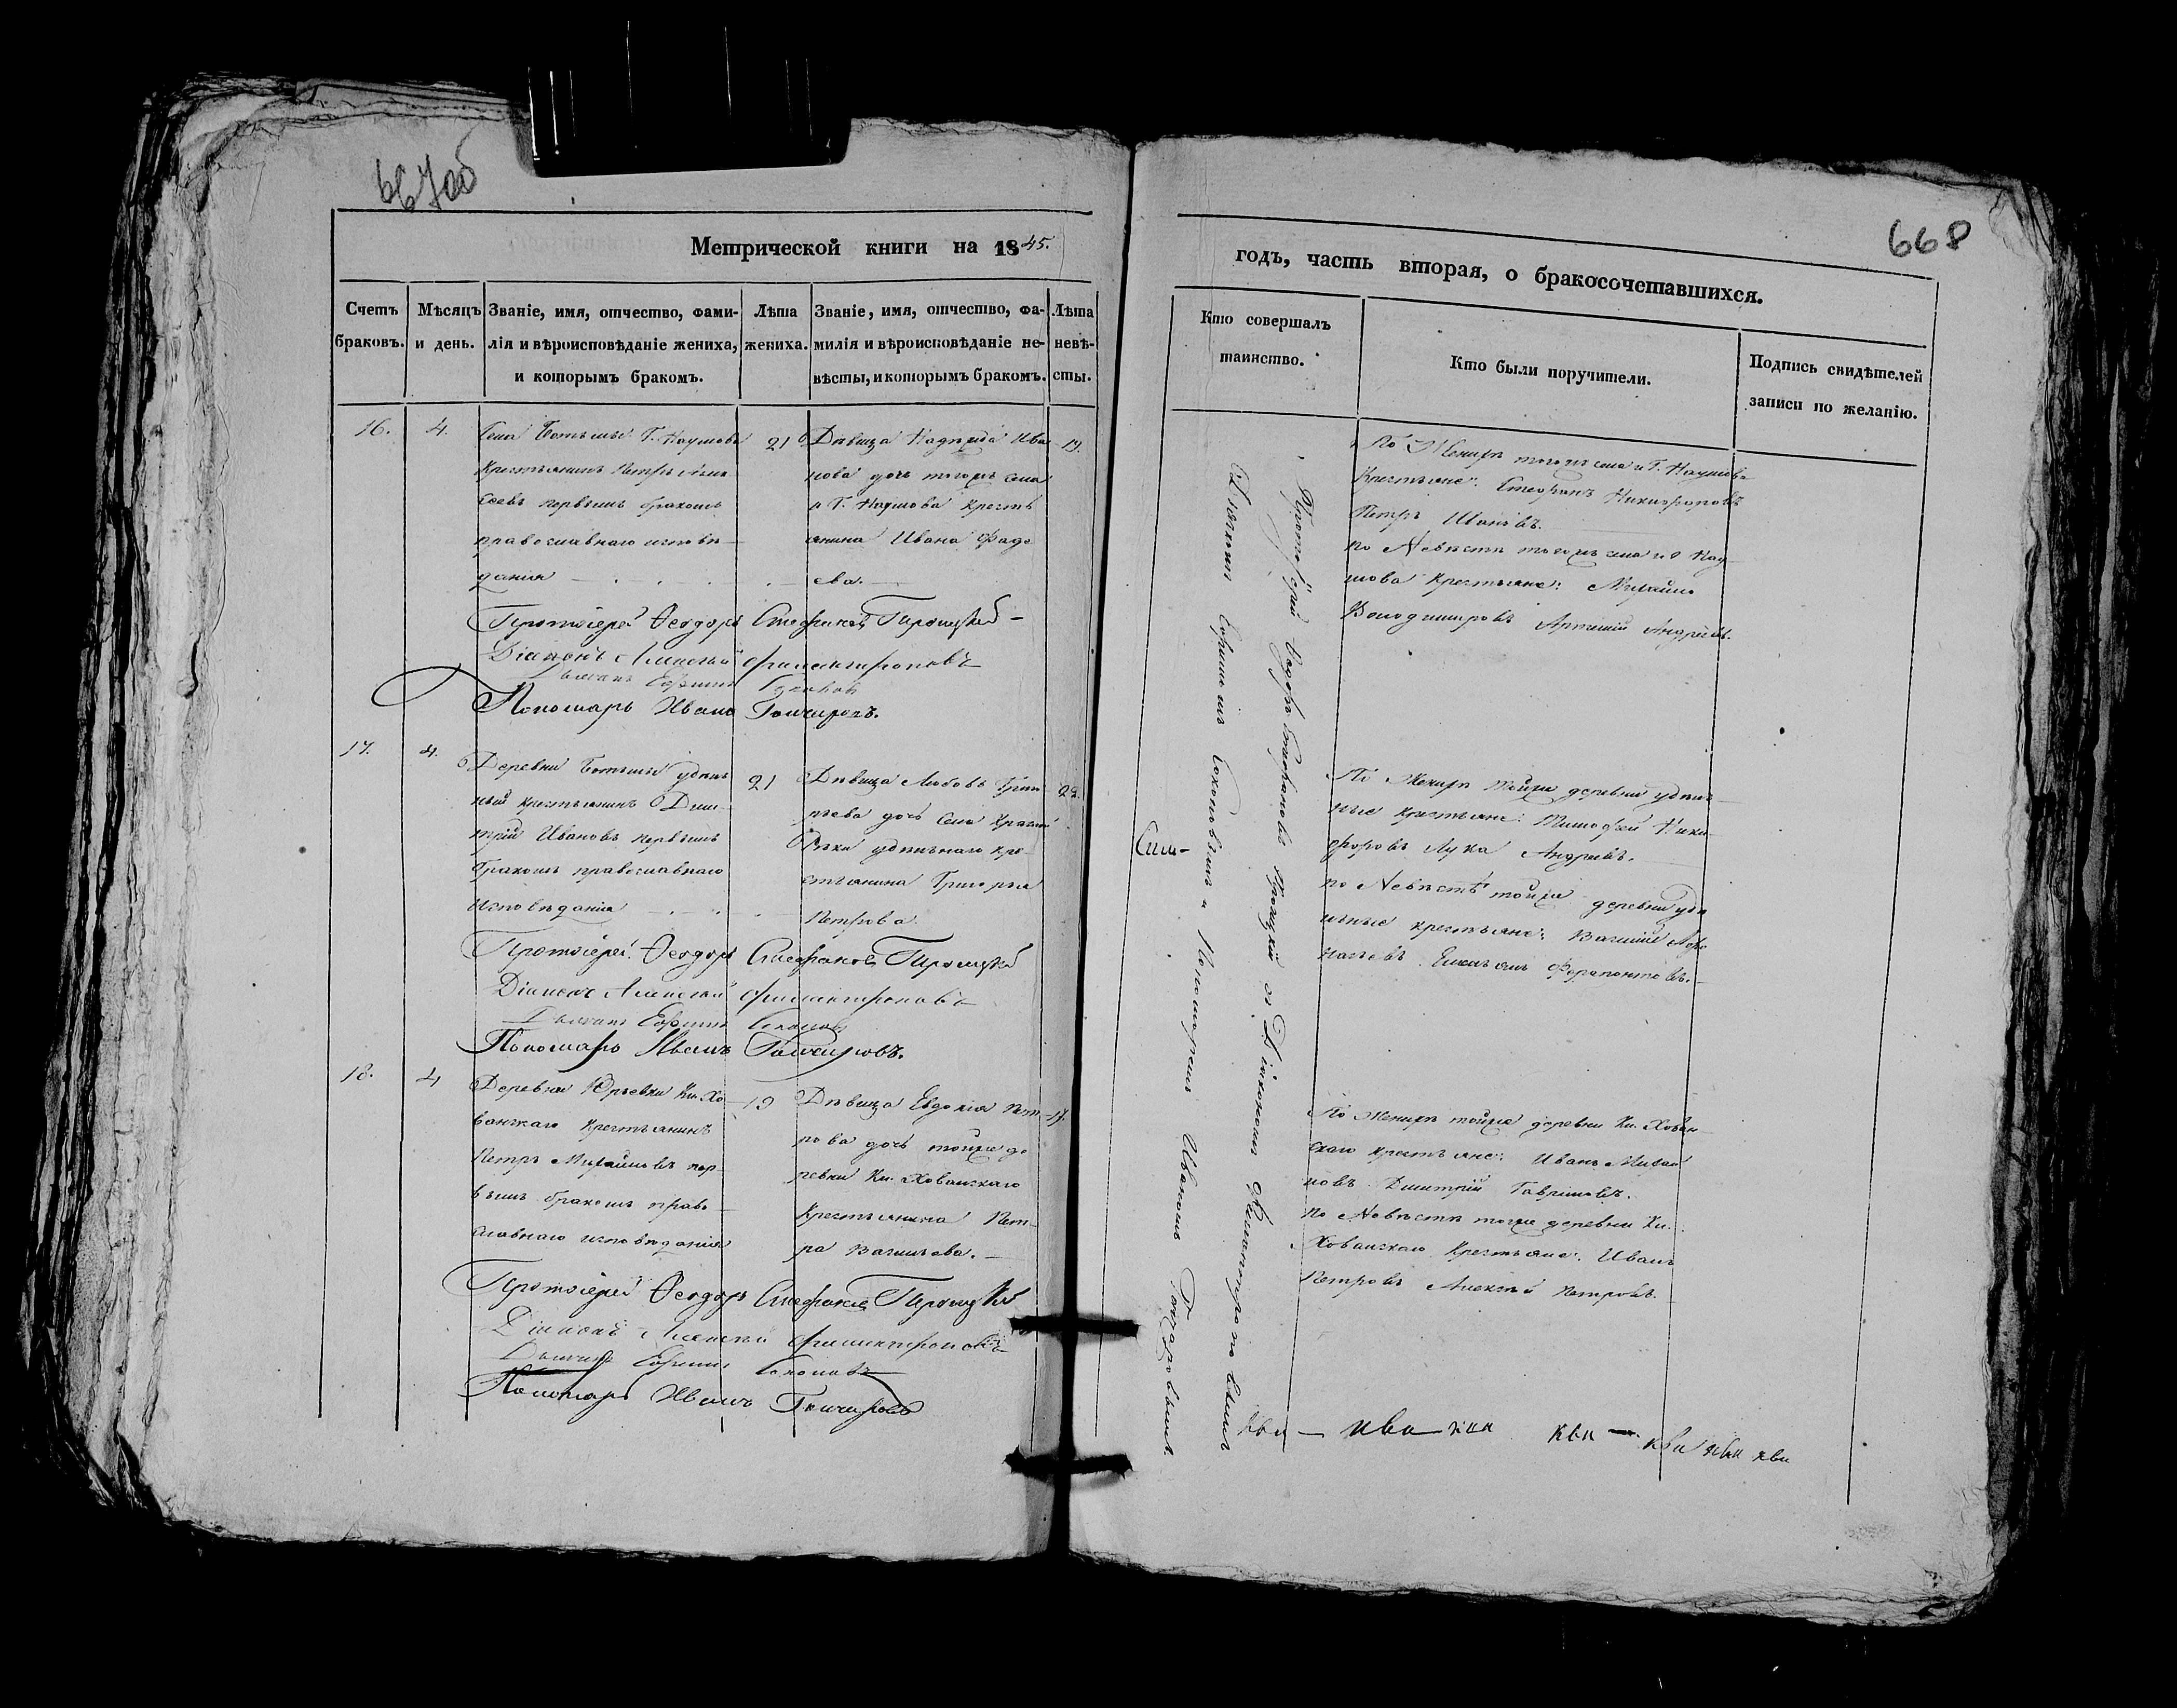 667об
Метрической книги на 1845.
Счетъ браковъ.
Мѣсяцъ и день.
Званіе, имя, отчество, фами-
лія и вѣроисповѣданіе жениха,
и которымъ бракомъ.
Лѣта
жениха.
Званіе, имя, отчество, фа-
милія и вѣроисповѣданіе не-
вѣсты, и которымъ бракомъ.
Лѣта
невѣ-
сты.
16.
4.
Села Г. Наумова
крестьянинъ Петръ
первымъ бракомъ
православнаго исповѣ-
данія
21
Дѣвица Надежда Ива
нова дочь тогожъ села
и Г. Наумова кресть
янина Ивана Фаде
ева.
19.
Протоіерей Ѳеодоръ Стефановъ Троицкій
Діаконъ Алексѣй Филантроповъ
Дьячокъ Ефимъ Соколовъ
Пономарь Иванъ
17.
4.
Деревни удѣль
ный крестьянинъ Дми
трій Ивановъ первымъ
бракомъ православнаго
исповѣданія
21
Дѣвица Любовь Григо
рьева дочь села Красной
Рѣки удѣльнаго кре
стьянина Григорья
Петрова
22.
Протоіерей Ѳеодоръ Стефановъ Троицкій
Діаконъ Алексѣй Филантроповъ
Дьячокъ Ефимъ Соколовъ
Пономарь Иванъ
18.
4
Деревни Юрьевки Кн. Хо
ванскаго крестьянинъ
Петръ Михайловъ пер
вымъ бракомъ право
славнаго исповѣданія
19
Дѣвица Евдокія Пет
рова дочь тойже де
ревни Кн. Хованскаго
крестьянина Пет
ра Васильева.
17.
Протоіерей Ѳеодоръ Стефановъ Троицкій
Діаконъ Алексѣй Филантроповъ
Дьячокъ Ефимъ Соколовъ
Пономарь Иванъ
668
годъ, часть вторая, о бракосочетавшихся.
Кто совершалъ
таинство.
Кто были поручители.
Подпись свидѣтелей
записи по желанію.
Протоіерей Ѳеодоръ Стефановъ Троицкій съ Діакономъ Филантроповымъ
Дьячкомъ Ефимомъ Соколовымъ и Пономаремъ Иваномъ
По Женихѣ тогожъ села и Г. Наумова
крестьяне: Стефанъ Никифоровъ
Петръ Ивановъ.
по Невѣстѣ тогожъ села и Г. Нау
мова крестьяне: Михайло
Володимировъ Артемій Андреевъ.
По Женихѣ тойже деревни удѣль
ные крестьяне: Тимофей Ники
форовъ Лука Андреевъ.
по Невѣстѣ тойже деревни удѣ
льные крестьяне: Василій Афо
насьевъ Емельянъ Ферапонтовъ.
По Женихѣ тойже деревни Кн. Хован
скаго крестьяне: Иванъ Михай
ловъ Дмитрій Гавриловъ.
по Невѣстѣ тойже деревни Кн.
Хованскаго крестьяне: Иванъ
Петровъ Алексѣй Петровъ.